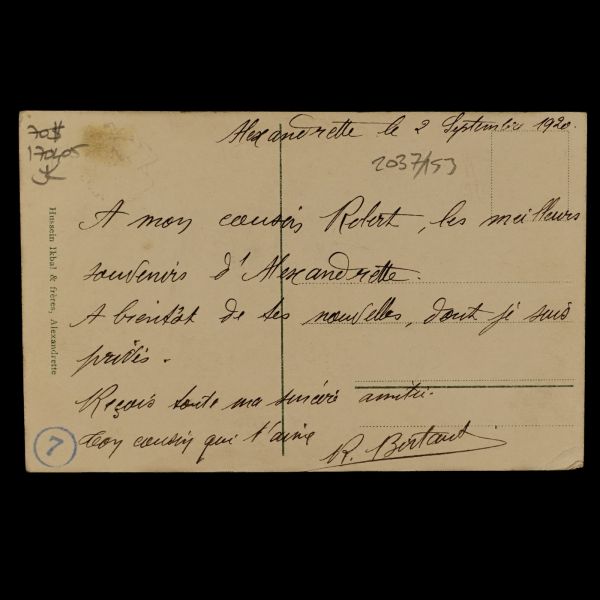 Alexandrette le 2 Septembre 1920.
70$
17005
2037/153
A mon cousin Robert, les meilleurs
souvenirs d'Alexandrette.
A bientôt de tes nouvelles, dont je suis
privé.
Reçois toute ma sincère amitié.
Ton cousin qui t'aime
R. Bertaut
Hussein Ikbal & frères, Alexandrette
7